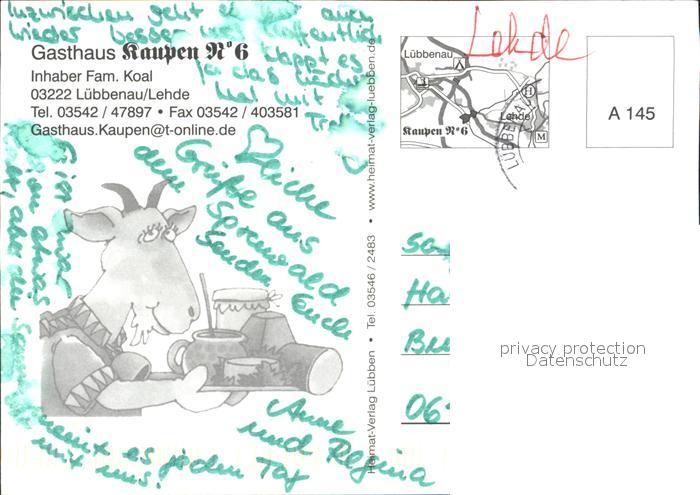 Inzwischen geht es auch
wieder besser und hoffentlich
klappt es
ja das nächste
Mal mit
Gasthaus Kaupen Nº 6
Inhaber Fam. Koal
03222 Lübbenau/Lehde
Tel. 03542 / 47897 • Fax 03542 / 403581
Gasthaus.Kaupen@t-online.de
liche
Grüße aus
dem Spreewald
senden Euch
Anne
und Regina
meint es jeden Tag
mit uns.
Heimat-Verlag Lübben • Tel. 03546 / 2483 • www.heimat-verlag-luebben.de
Lehde
Lübbenau
Lehde
Kaupen Nº6
H
M
LÜBBENAU
A 145
Ha
06
privacy protection
Datenschutz